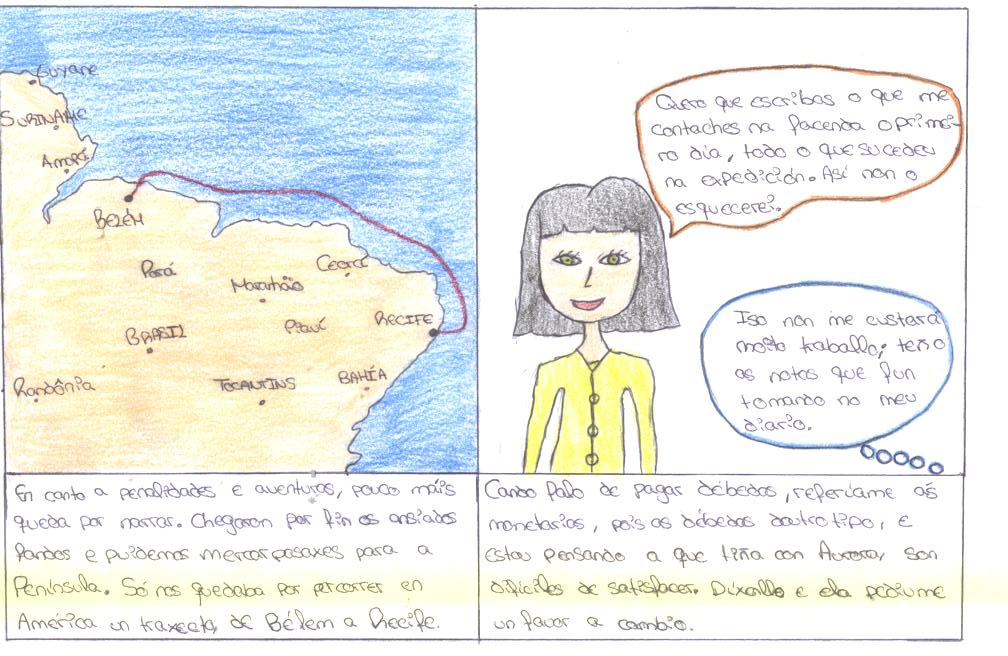 Guyane
SURINAME
Amapá
BELÉM
Pará
Maranhão
Ceará
BRASIL
Piauí
RECIFE
Rondônia
TOCANTINS
BAHÍA
En canto a penalidades e aventuras, pouco máis
queda por narrar. Chegaron por fin os ansiados
fondos e puidemos mercar pasaxes para a
Península. Só nos quedaba por percorrer en
América un traxecto, de Bélem a Recife.
Quero que escribas o que me
contaches na facenda o primei-
ro día, todo o que sucedeu
na expedición. Así non o
esquecerei.
Iso non me custará
moito traballo; teño
as notas que fun
tomando no meu
diario.
Cando falo de pagar débedas, referíame ás
monetarias, pois as débedas doutro tipo, e
estou pensando a que tiña con Aurora, son
difíciles de satisfacer. Díxenllo e ela pediume
un favor a cambio.